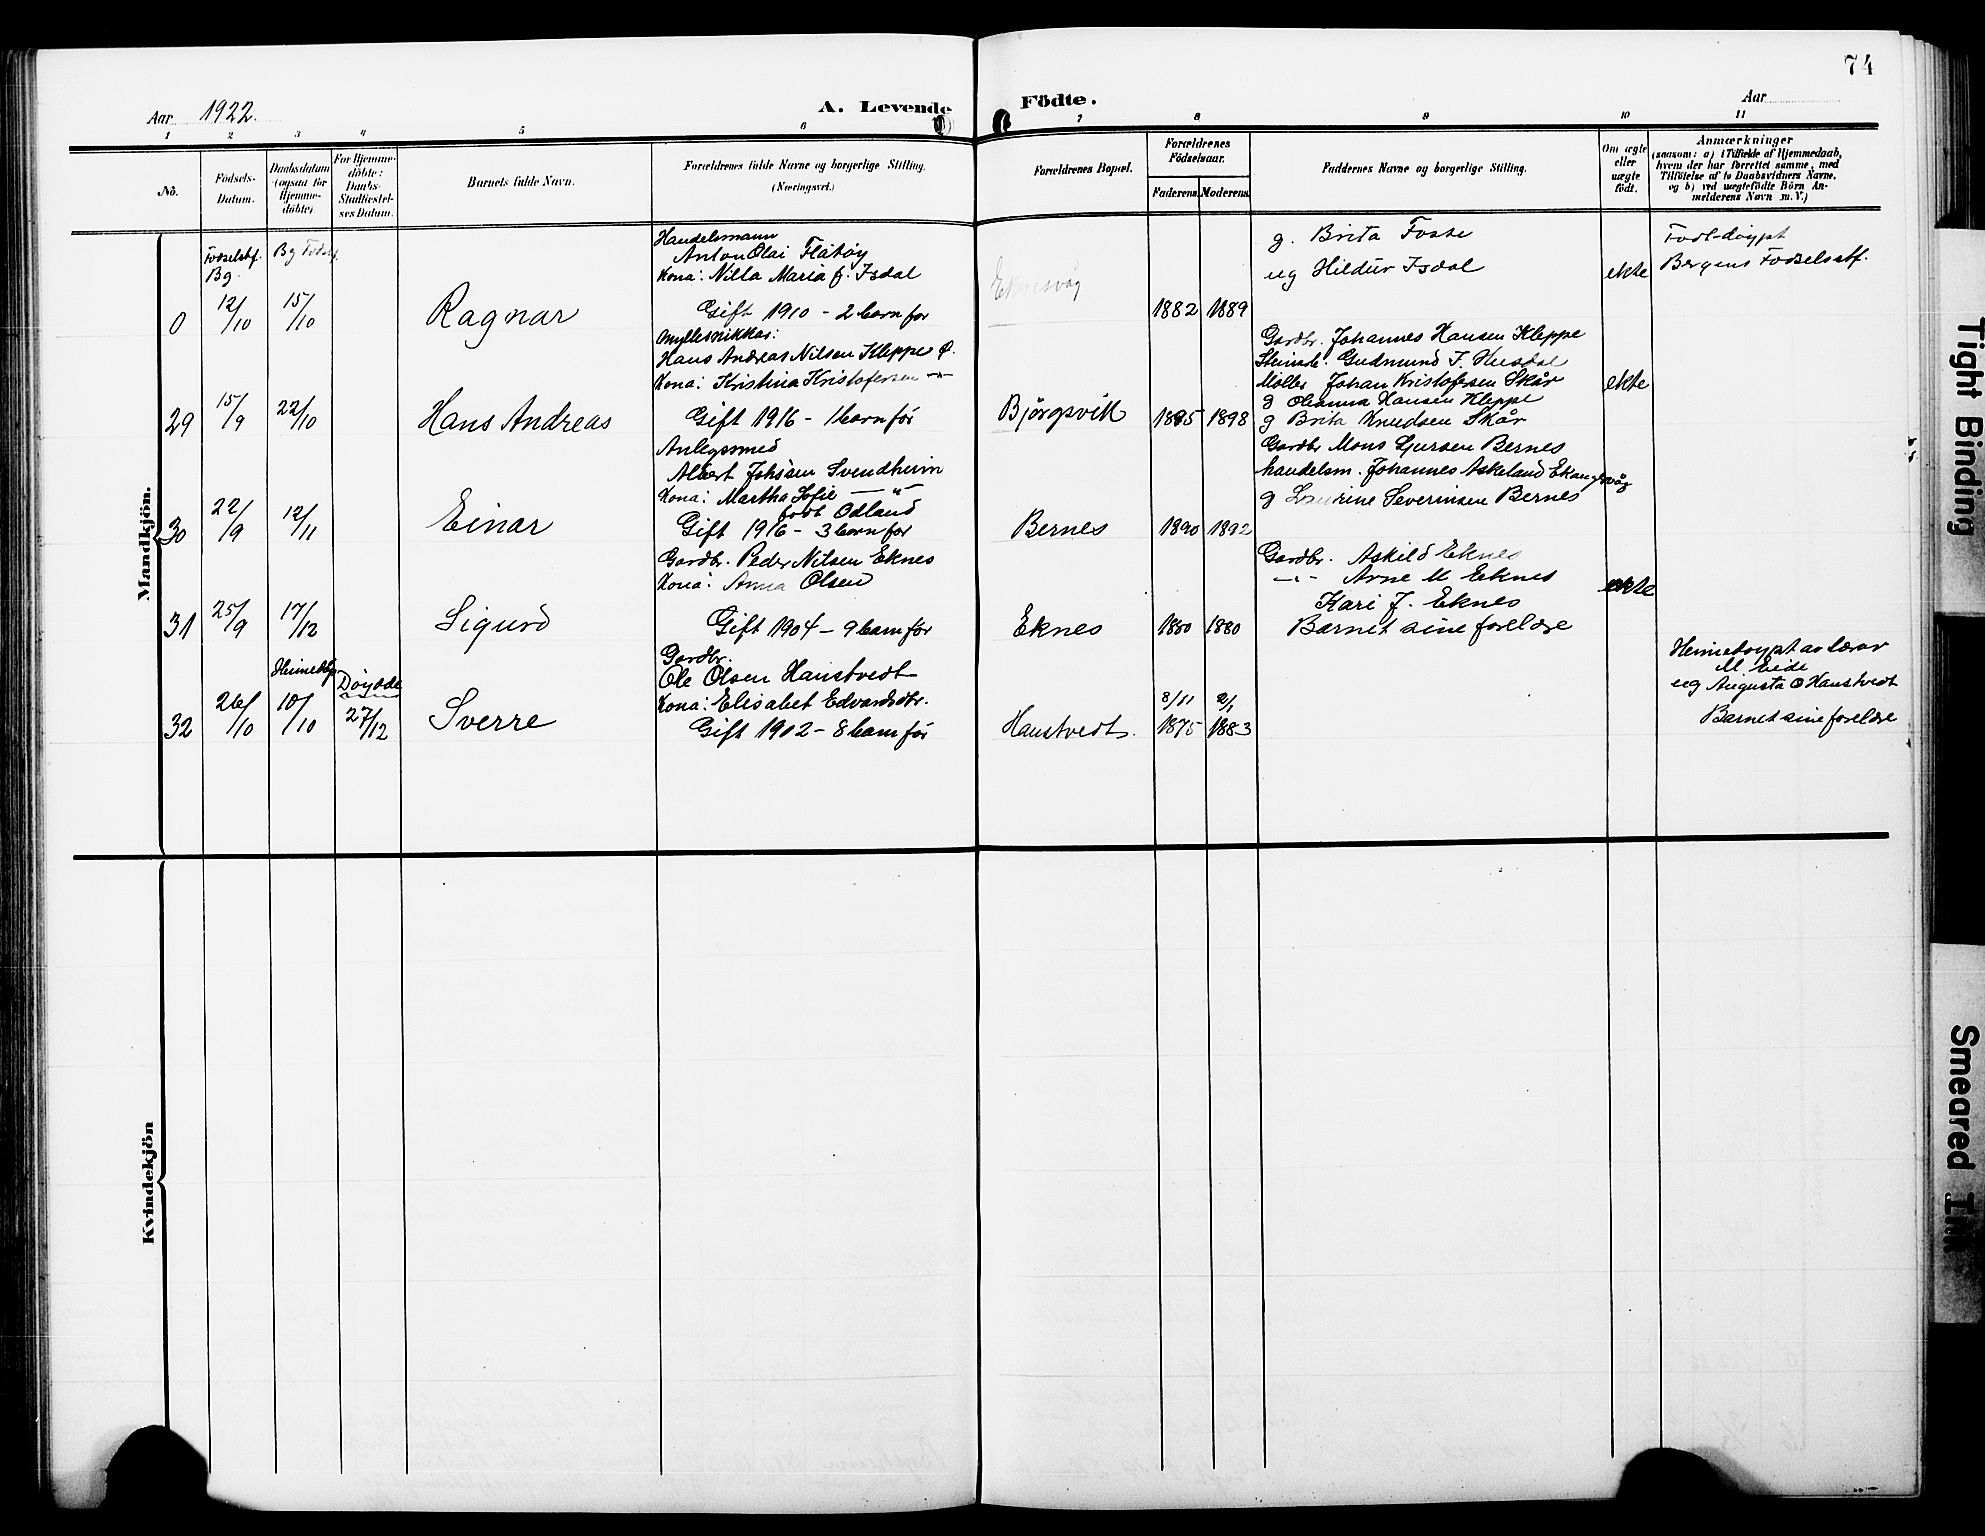 74
Aar 1922.
A. Levende Födte.
Aar
1 2 3 4 5 6 7 8 9 10 11
No.
Födsels-
Datum.
Daabsdatum
(ogsaa for
Hjemme-
döbte).
For Hjemme-
döbte:
Daabs-
Stadfæstel-
ses Datum.
Barnets fulde Navn.
Forældrenes fulde Navne og borgerlige Stilling.
(Næringsvei.)
Forældrenes Bopæl.
Forældrenes
Födselsaar.
Faderens. Moderens.
Faddernes Navne og borgerlige Stilling.
Om ægte
eller
uægte
födt.
Anmærkninger
(saasom: a) i Tilfælde af Hjemmedaab,
hvem der har forrettet samme, med
Tilföielse af to Daabsvidners Navne,
og b) ved uægtefödte Börn An-
melderens Navn m. V.)
Mandkjön.
Fodselstf.
Bg.
Bg Fodsf
0
12/10
15/10
Ragnar
Handelsmann
Anton Olai Flatøy
Kona: Nilla Maria f. Isdal
Gift 1910 - 2 barn før
Eknesvåg
1882 1889
g. Brita Fosse
ug Hildur Isdal
ekte
Født-døypt
Bergens Fodselsstf.
29
15/9
22/10
Hans Andreas
Myllesnikkar:
Hans Andreas Nilsen Kleppe
Kona: Kristina Kristofersen -"-
Gift 1916 - 1 barn før
Bjørgsvik
1895 1898
Gardbr. Johannes Hansen Kleppe
Gudmund J. Husdal
Møller Johan Kristofersen Skår
g Oleanna Hansen Kleppe
g Brita Knudsen Skår
ekte
30
22/9
12/11
Einar
Anlegssmed
Albert Johssen Svendheim
Kona: Martha Sofie -"-
født Odland
Gift 1916 - 3 barn før
Bernes
1890 1892
Gardbr Mons Sjursen Bernes
handelsm. Johannes Askeland Eknesvåg
g Severinsen Bernes
31
25/9
17/12
Sigurd
Gardbr. Peder Nilsen Eknes
Kona: Anna Olsen
Gift 1904 - 9 barn før
Eknes
1880 1880
Gardbr. Askild Eknes
-"- Arne M Eknes
Kari J. Eknes
Barnet sine foreldre
ekte
32
26/10
Heimedøp
10/10
Døydde
27/12
Sverre
Gardbr.
Ole Olsen Haustvedt
Kona: Elisabet Edvardsdtr.
Gift 1902 - 8 barn før
Haustvedt.
3/11 2/1
1875 1883
Heimedøypt av lærar
M Eide
ug Augusta O Haustvedt
Barnet sine foreldre
Kvindekjön
Tight Binding
Smeared Ink